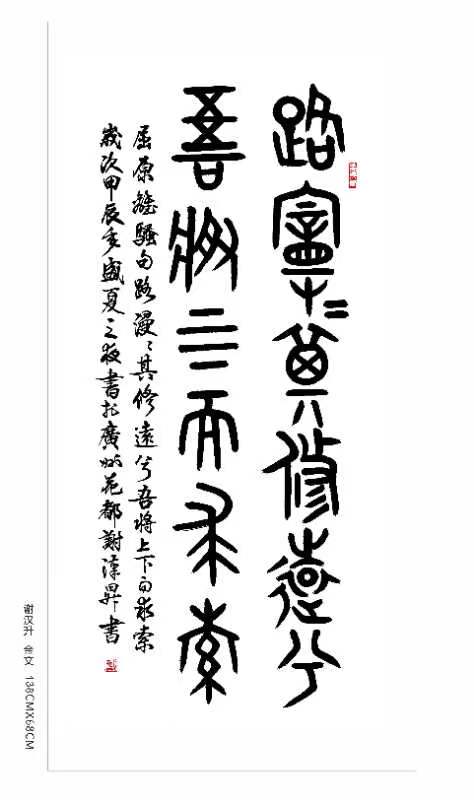 路曼〻其修遠兮
吾將上下而求索
屈原離騷句路漫〻其修遠兮吾將上下而求索
歲次甲辰年盛夏之夜書於廣州花都謝漢昇書
谢汉升 金文 138CMX68CM